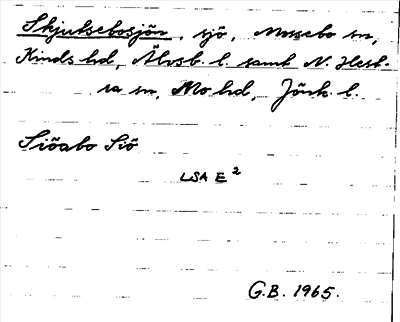 Skjutsebosjön, sjö, Mossebo sn,
Kinds hd, Älvsb. l. samt N. Hest-
ra sn, Mo hd, Jönk. l.
Siöabo Siö
LSA E²
G.B. 1965.